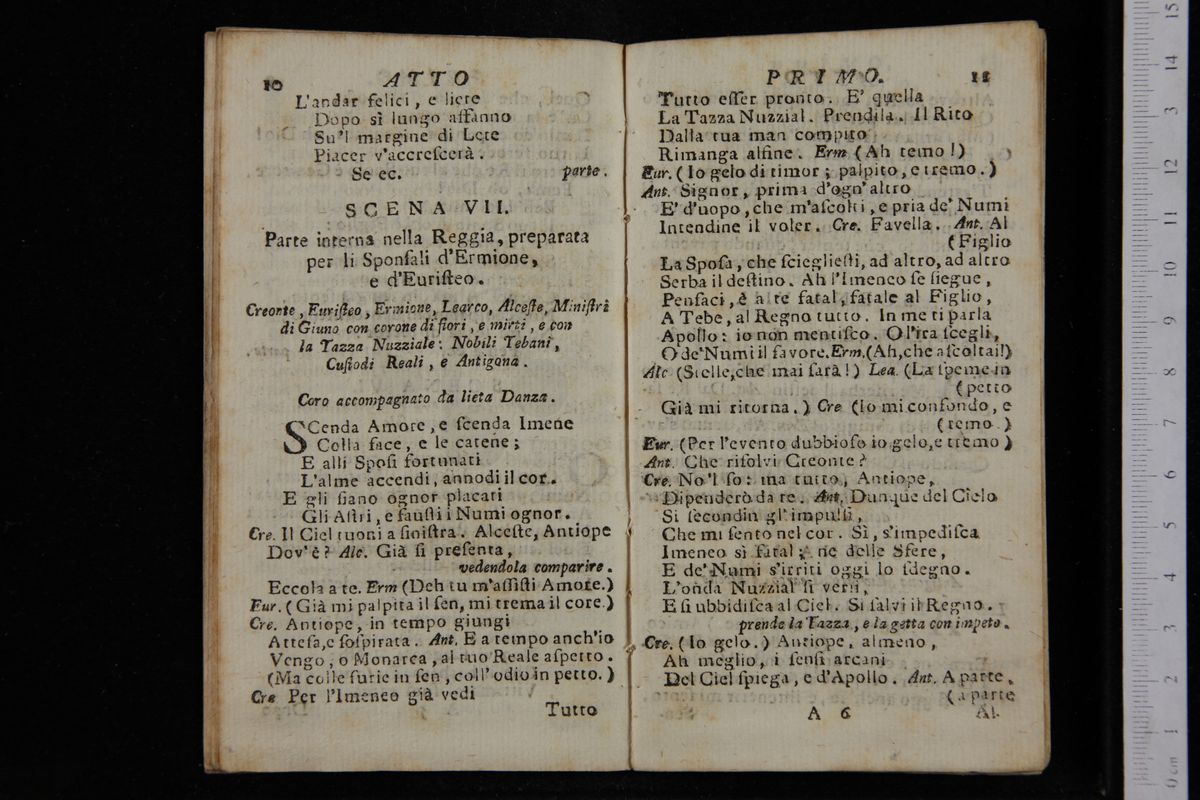 10 ATTO
L'andar felici, e liete
Dopo sì lungo affanno
Su'l margine di Lete
Piacer v'accreſceerà.
Se ec. parte.
SCENA VII.
Parte interna nella Reggia, preparata
per li Sponſali d'Ermione,
e d'Euriſteo.
Creonte, Euriſteo, Ermione, Learco, Alceſte, Miniſtri
di Giuno con corone di fiori, e mirti, e con
la Tazza Nuzziale: Nobili Tebani,
Cuſtodi Reali, e Antigona.
Coro accompagnato da lieta Danza.
SCenda Amore, e ſcenda Imene
Colla face, e le catene;
E alli Spoſi fortunati
L'alme accendi, annodi il cor.
E gli ſiano ognor placati
Gli Aſtri, e fauſti i Numi ognor.
Cre. Il Ciel tuoni a ſiniſtra. Alceſte, Antiope
Dov'è? Alc. Già ſi preſenta,
vedendola comparire.
Eccola a te. Erm (Deh tu m'aſſiſti Amore.)
Eur. (Già mi palpita il ſen, mi trema il core.)
Cre. Antiope, in tempo giungi
Atteſa, e ſoſpirata. Ant. E a tempo anch'io
Vengo, o Monarca, al tuo Reale aſpetto.
(Ma colle furie in ſen, coll'odio in petto.)
Cre Per l'Imeneo già vedi
Tutto
PRIMO. 11
Tutto eſſer pronto. E' quella
La Tazza Nuzzial. Prendila. Il Rito
Dalla tua man compito
Rimanga alfine. Erm (Ah temo!)
Eur. (Io gelo di timor; palpito, e tremo.)
Ant. Signor, prima d'ogn'altro
E' d'uopo, che m'aſcolti, e pria de' Numi
Intendine il voler. Cre. Favella. Ant. Al
(Figlio
La Spoſa, che ſcieglieſti, ad altro, ad altro
Serba il deſtino. Ah l'Imeneo ſe ſiegue,
Penſaci, è a te fatal, fatale al Figlio,
A Tebe, al Regno tutto. In me ti parla
Apollo: io non mentiſco. O l'ira ſcegli,
O de'Numi il favore. Erm. (Ah, che aſcoltai!)
Alc (Stelle, che mai ſarà!) Lea. (La ſpeme in
(petto
Già mi ritorna.) Cre (Io mi confondo, e
(temo.)
Eur. (Per l'evento dubbioſo io gelo, e tremo)
Ant. Che riſolvi Creonte?
Cre. No'l ſo: ma tutto, Antiope,
Dipenderò da te. Ant. Dunque del Cielo
Si ſecondin gl'impulſi,
Che mi ſento nel cor. Sì, s'impediſca
Imeneo sì fatal; ne delle Sfere,
E de' Numi s'irriti oggi lo ſdegno.
L'onda Nuzzial ſi verſi,
E ſi ubbidiſca al Ciel. Si ſalvi il Regno.
prende la Tazza, e la getta con impeto.
Cre. (Io gelo.) Antiope, almeno,
Ah meglio, i ſenſi arcani
Del Ciel ſpiega, e d'Apollo. Ant. A parte,
(a parte
A 6 Al
15
14
13
12
11
10
9
8
7
6
5
4
3
2
1
0 cm